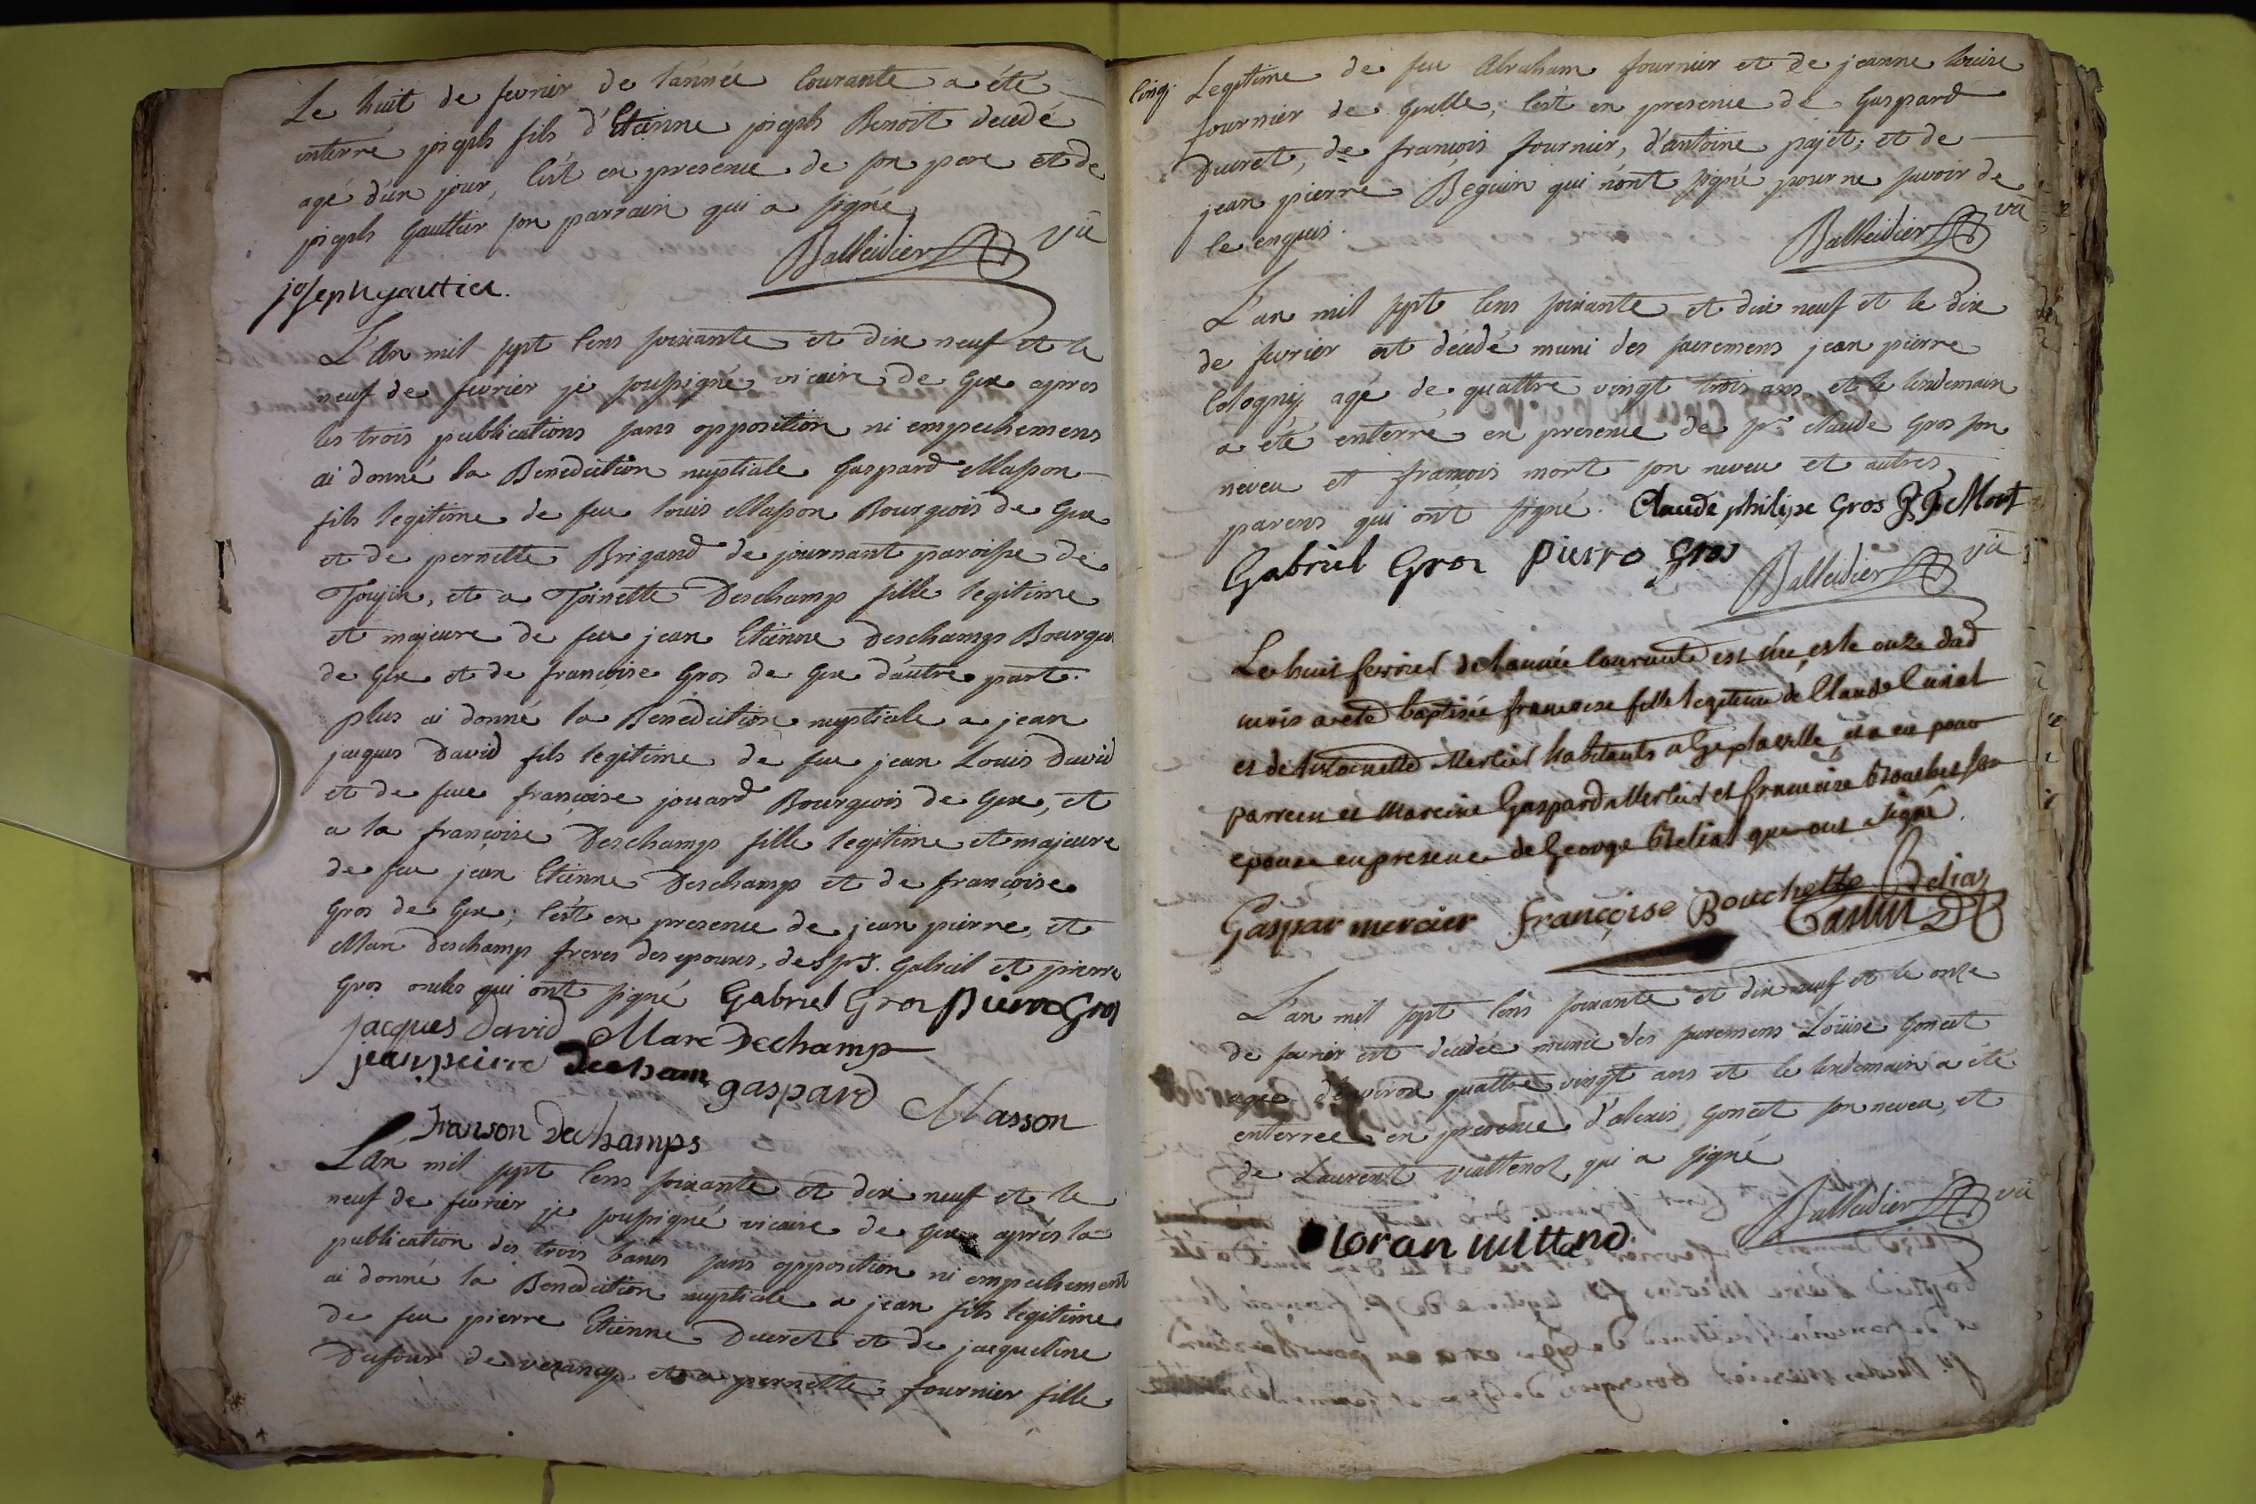 Le huit de fevrier de l'année Courante a été
enterré joseph fils d'Etienne joseph Benoit decedé
agé d'un jour, C'est en presence de son pere et de
joseph Gauttier son parrain qui a signé
Balleidier vic
joseph gautier.
L'An mil sept Cens soixante et dix neuf et le
neuf de fevrier je soussigné vicaire de Gex apres
les trois publications sans opposition ni empechemens
ai donné la Benediction nuptiale Gaspard Masson
fils legitime de feu louis Masson Bourgeois de Gex
et de pernette Brigand de journant paroisse de
et a Toinette Deschamp fille legitime
et majeure de feu jean Etienne Deschamps Bourgeo
de Gex et de françoise Gros de Gex d'autre part.
plus ai donné la Benediction nuptiale a jean
jaques David fils legitime de feu jean Louis David
et de feue françoise jouard Bourgeois de Gex, et
a la françoise Deschamps fille legitime et majeure
de feu jean Etienne Deschamp et de françoise
Gros de Gex; C'est en presence de jean pierre, et
Marc Deschamp freres des epouses, de srs. Gabriel et pierre
Gros oncles qui ont signé Gabriel Gros pierre Gros
jacques David Marc Dechamp
jean peirre Decham gaspard Masson
franson Dechamps
L'An mil sept Cens soixante et dix neuf et le
neuf de fevrier je soussigné vicaire de Gex après la
publication des trois bancs sans opposition ni empechement
ai donné la Benediction nuptiale a jean fils legitime
de feu pierre Etienne Ducret et de jacqueline
Dufour de vezancy et a pernette fournier fille
Legitime de feu Abraham fournier et de jeanne louise
fournier de Grelle; C'est en presence de Gaspard
Ducret, de françois fournier, d'antoine pajet, et de
jean pierre Beguin qui n'ont signé pour ne savoir de
le enquis.
Balleidier vic
L'an mil sept Cens soixante et dix neuf et le dix
de fevrier est décédé muni des sacremens jean pierre
Cologny agé de quattre vingt trois ans et le lendemain
a été enterré en presence de sr claude Gros son
neveu et françois mort son neveu et autres
parens qui ont signé. Claude philipe Gros J F Mort
Gabriel Gros pierre gros
Balleidier vic
Le huit fevrier de lannée Courante est née, et le onze dud
mois a eté baptisée francoise fille legitime de Claude
et de Antoinette Mercier habitants a Gex la ville, et a eu pour
parrein et Mareine Gaspard Mercier et francoise Bouchet son
epouse en presence de George que ont signé.
Gaspar mercier françoise Bouchette
L'an mil sept Cens soixante et dix neuf et le onze
de fevrier est decedée munie des sacremens Loüise Gonet
agée d'environ quattre vingt ans et le lendemain a été
enterrée en presence d'alexis Gonet son neveu, et
de Laurent qui a signé
Balleidier vic
loran